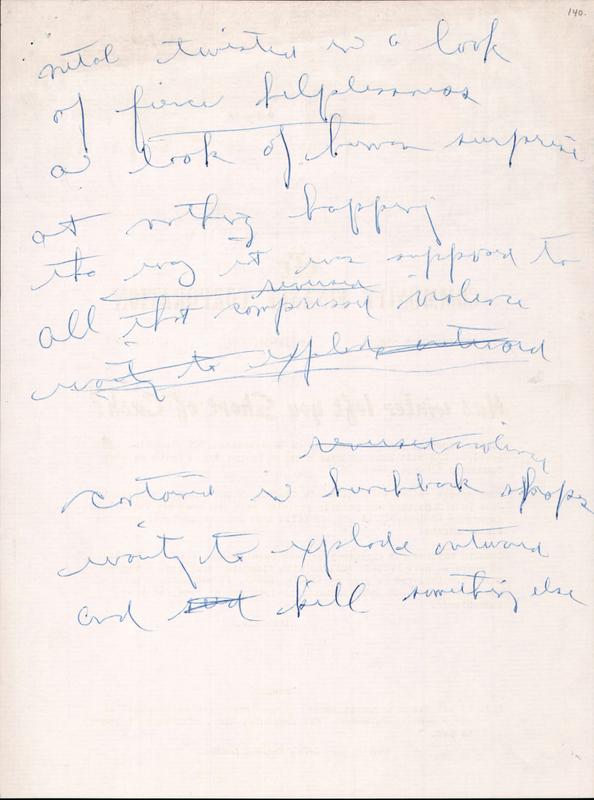 140.
metal twisted in a look
of fierce helplessness
a look of human surprise
at nothing happening
the way it was supposed to
reversed
all that compressed violence
waiting to explode outward
reversed violence
contained in hunchback shapes
waiting to explode outward
and kill something else